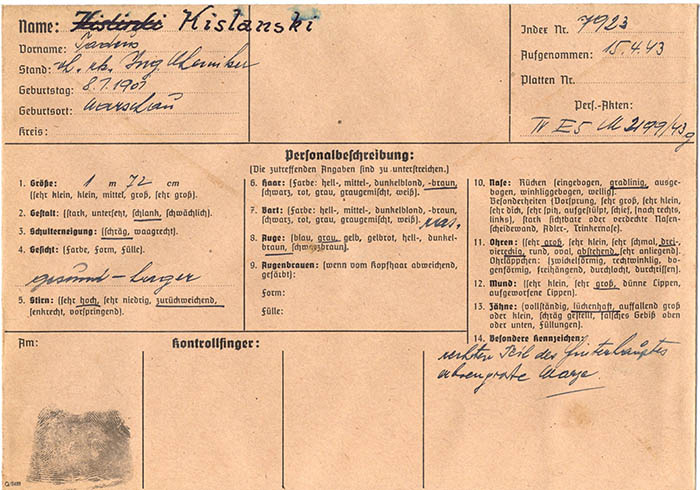 Name: Hislanski
Vorname:
Stand: Ing. Chemiker
Geburtstag: 8.7.1901
Geburtsort: Warschau
Kreis:
Index Nr. 7923
Aufgenommen: 15.4.43
Platten Nr.
Pers.-Akten:
IV E5 M 2199/43g
Personalbeschreibung:
(Die zutreffenden Angaben sind zu unterstreichen.)
1. Größe: 1 m 72 cm
(sehr klein, klein, mittel, groß, sehr groß).
2. Gestalt: (stark, untersetzt, schlank, schwächlich).
3. Schulterneigung: (schräg, waagrecht).
4. Gesicht: (Farbe, Form, Fülle).
gesund – hager
5. Stirn: (sehr hoch, sehr niedrig, zurückweichend,
senkrecht, vorspringend).
6. Haar: (Farbe: hell-, mittel-, dunkelblond, -braun,
schwarz, rot, grau, graugemischt, weiß).
7. Bart: (Farbe: hell-, mittel-, dunkelblond, -braun,
schwarz, rot, grau, graugemischt, weiß). ras.
8. Auge: (blau, grau, gelb, gelbrot, hell-, dunkel-
braun, schwarzbraun).
9. Augenbrauen: (wenn vom Kopfhaar abweichend,
gefärbt):
Form:
Fülle:
10. Nase: Rücken (eingebogen, gradlinig, ausge-
bogen, winkliggebogen, wellig).
Besonderheiten (Vorder-, sehr groß, sehr klein,
sehr dick, sehr spitz, aufgestülpt, schief, (nach rechts,
links), stark sichtbare oder verdeckte Nasen-
scheidewand, Adler-, Trinkernase).
11. Ohren: (sehr groß, sehr klein, sehr schmal, drei-
viereckig, rund, oval, abstehend, sehr anliegend).
Ohrläppchen: (zwickelförmig, rechtwinklig, bo-
genförmig, freihängend, durchlocht, durchrissen).
12. Mund: (sehr klein, sehr groß, dünne Lippen,
aufgeworfene Lippen).
13. Zähne: (vollständig, lückenhaft, auffallend groß
oder klein, schräg gestellt, falsches Gebiß oben
oder unten, Füllungen).
14. Besondere Kennzeichen:
rechten Teil des Hinterhauptes
Warze
Am:
Kontrollfinger: